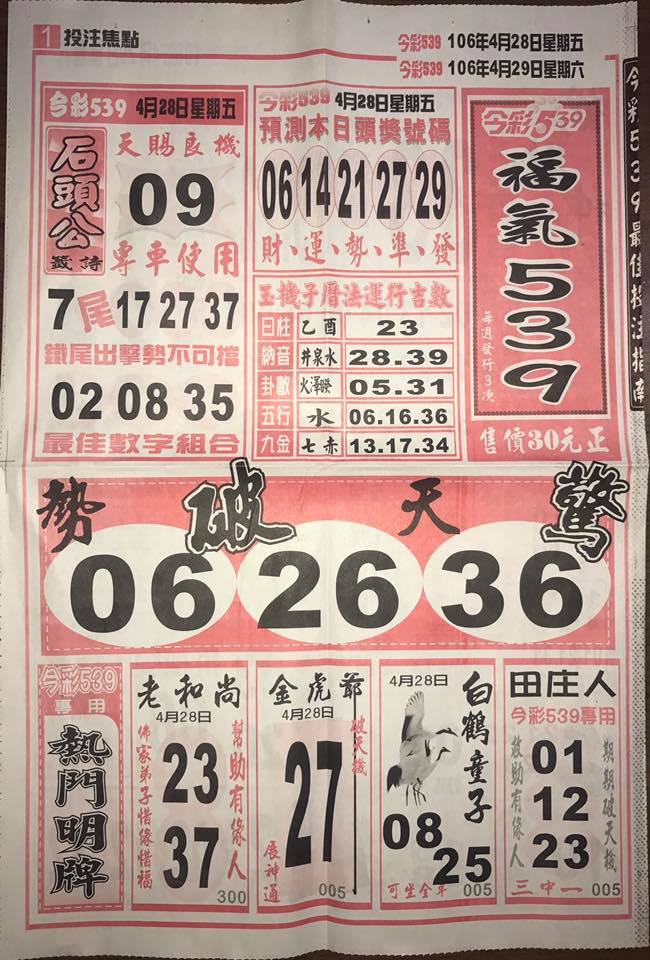 1 投注焦點
今彩539 106年4月28日星期五
今彩539 106年4月29日星期六
今彩539最佳投注指南
今彩539 4月28日星期五
石頭公
籤詩
天賜良機
09
專車使用
7尾 17 27 37
鐵尾出擊勢不可擋
02 08 35
最佳數字組合
今彩539 4月28日星期五
預測本日頭獎號碼
06 14 21 27 29
財、運、勢、準、發
玉機子曆法運行吉數
日柱 乙酉 23
納音 井泉水 28.39
卦數 火澤睽 05.31
五行 水 06.16.36
九金 七赤 13.17.34
今彩539
福氣539
每週發行3次
售價30元正
驚天破勢
06 26 36
今彩539
專用
熱門明牌
老和尚
4月28日
幫助有緣人
23
37
佛家弟子惜緣惜福
300
金虎爺
4月28日
破天機
27
展神通
005
4月28日
白鶴童子
08
25
可坐全年 005
田庄人
今彩539專用
期期破天機
01
12
23
救助有緣人
三中一 005